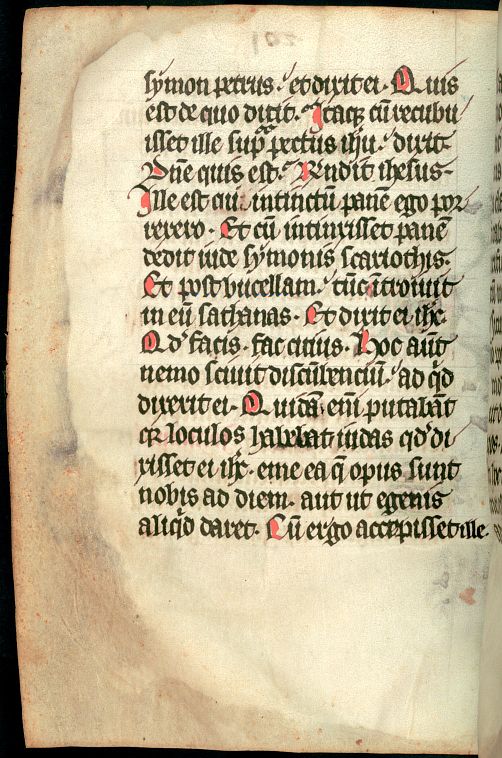 symon petrus. et dixit ei. Quis
est de quo dicit. Itaq; cū recubu
isset ille sup̄ pectus ihū. dixit
Dñe quis est. Rn̄dit ihesus.
Ille est cui intinctū panē ego por
rexero. Et cū intinxisset panē
dedit iude symonis scariothis.
Et post bucellam. tūc ītroiuit
in eū sathanas. Et dixit ei ihc.
Qd' facis. fac citius. Hoc aūt
nemo sciuit discūbenciū. ad qd
dixerit ei. Quidā eni putabāt
qz loculos habebat iudas qd' di
xisset ei ihc. eme ea q̄ opus sunt
nobis ad diem. aut ut egenis
aliqd daret. Cū ergo accepisset ille.